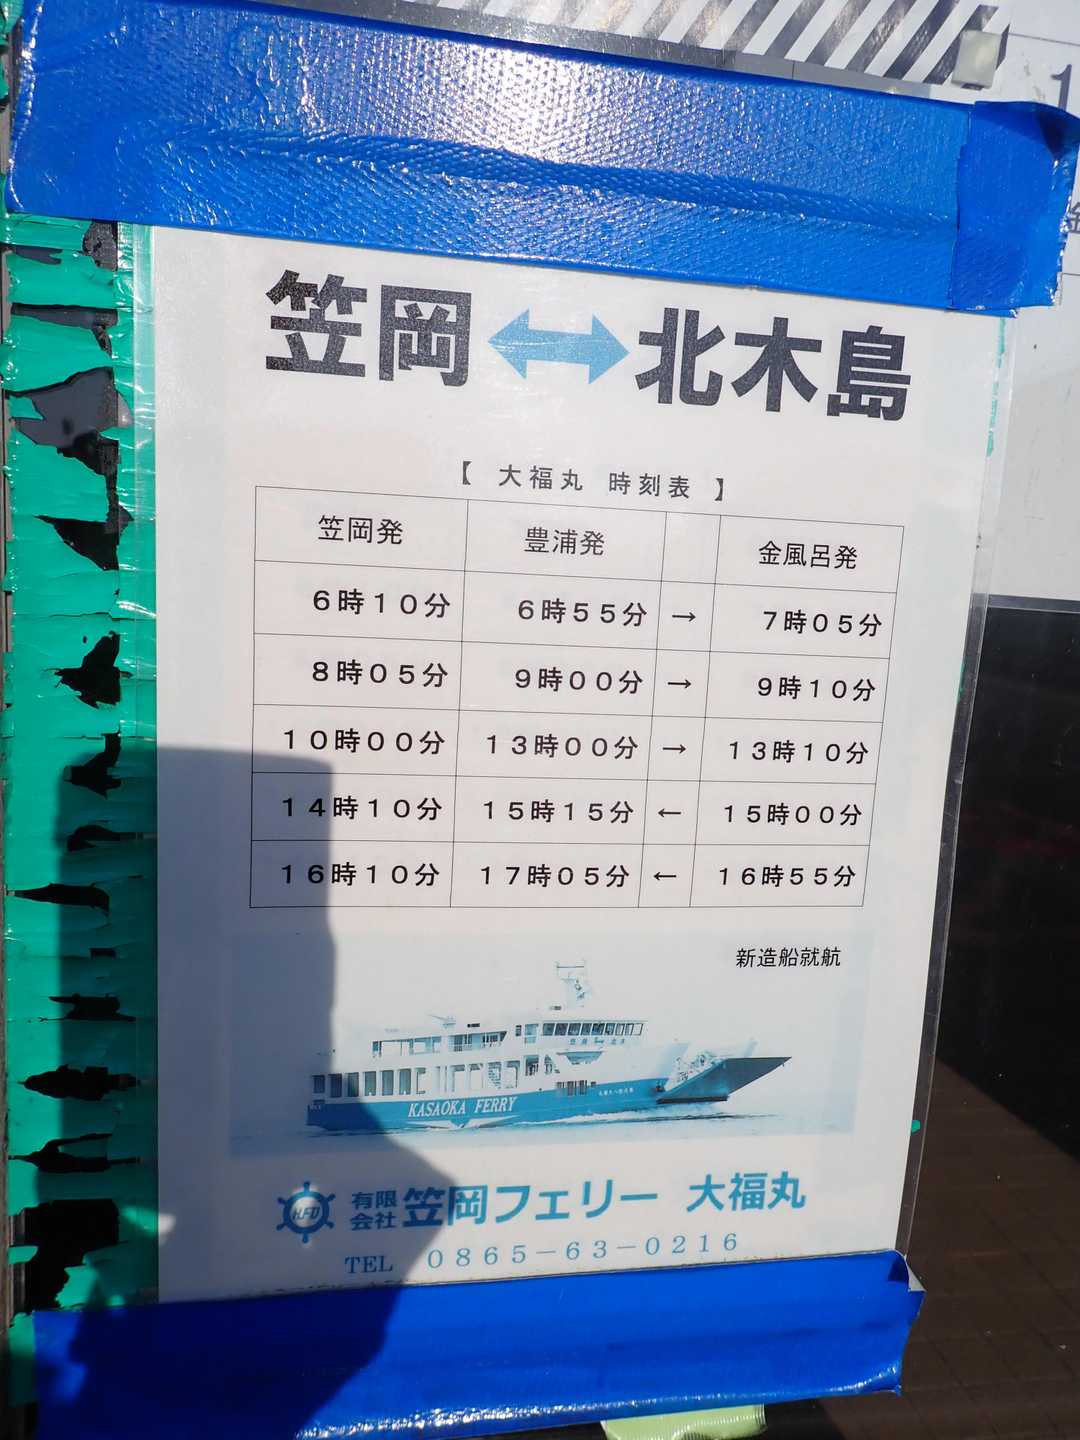 笠岡↔北木島
【 大福丸 時刻表 】
笠岡発 豊浦発 金風呂発
6時10分 6時55分 → 7時05分
8時05分 9時00分 → 9時10分
10時00分 13時00分 → 13時10分
14時10分 15時15分 ← 15時00分
16時10分 17時05分 ← 16時55分
新造船就航
KASAOKA FERRY
KFD
有限会社 笠岡フェリー 大福丸
TEL 0865-63-0216